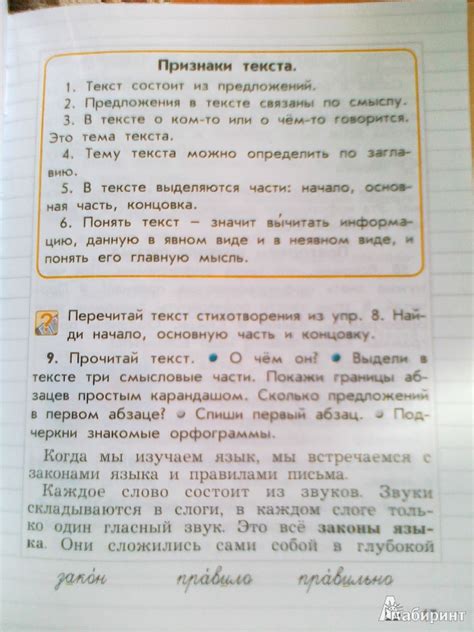 Признаки текста.
1. Текст состоит из предложений.
2. Предложения в тексте связаны по смыслу.
3. В тексте о ком-то или о чём-то говорится.
Это тема текста.
4. Тему текста можно определить по загла-
вию.
5. В тексте выделяются части: начало, основ-
ная часть, концовка.
6. Понять текст – значит вычитать информа-
цию, данную в явном виде и в неявном виде, и
понять его главную мысль.
Перечитай текст стихотворения из упр. 8. Най-
ди начало, основную часть и концовку.
9. Прочитай текст. • О чём он? • Выдели в
тексте три смысловые части. Покажи границы аб-
зацев простым карандашом. Сколько предложений
в первом абзаце? • Спиши первый абзац. • Под-
черкни знакомые орфограммы.
Когда мы изучаем язык, мы встречаемся с
законами языка и правилами письма.
Каждое слово состоит из звуков. Звуки
складываются в слоги, в каждом слоге толь-
ко один гласный звук. Это всё законы язы-
ка. Они сложились сами собой в глубокой
зако́н пра́вило пра́вильно
Лабиринт